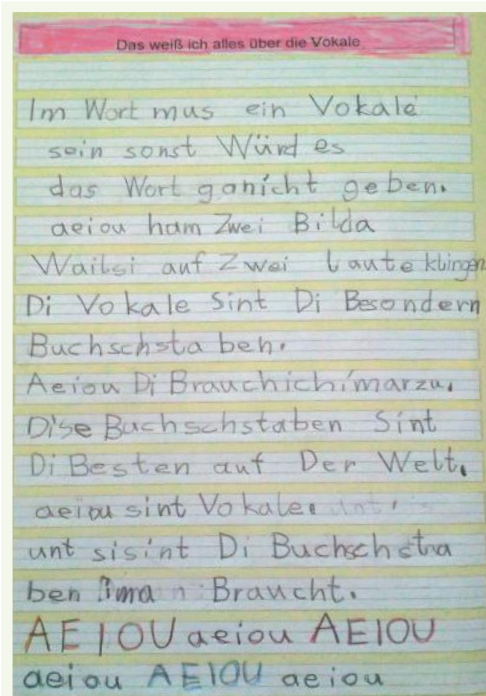 Das weiß ich alles über die Vokale
Im Wort mus ein Vokale
sein sonst Würd es
das Wort ganicht geben.
aeiou ham Zwei Bilda
Wailsi auf Zwei Laute klingen
Di Vokale Sint Di Besondern
Buchschstaben.
Aeiou Di Brauchichimarzu.
Dise Buchschstaben Sint
Di Besten auf Der Welt.
aeiou sint Vokale.
unt sisint Di Buchschsta
ben ima Braucht.
AEIOU aeiou AEIOU
aeiou AEIOU aeiou